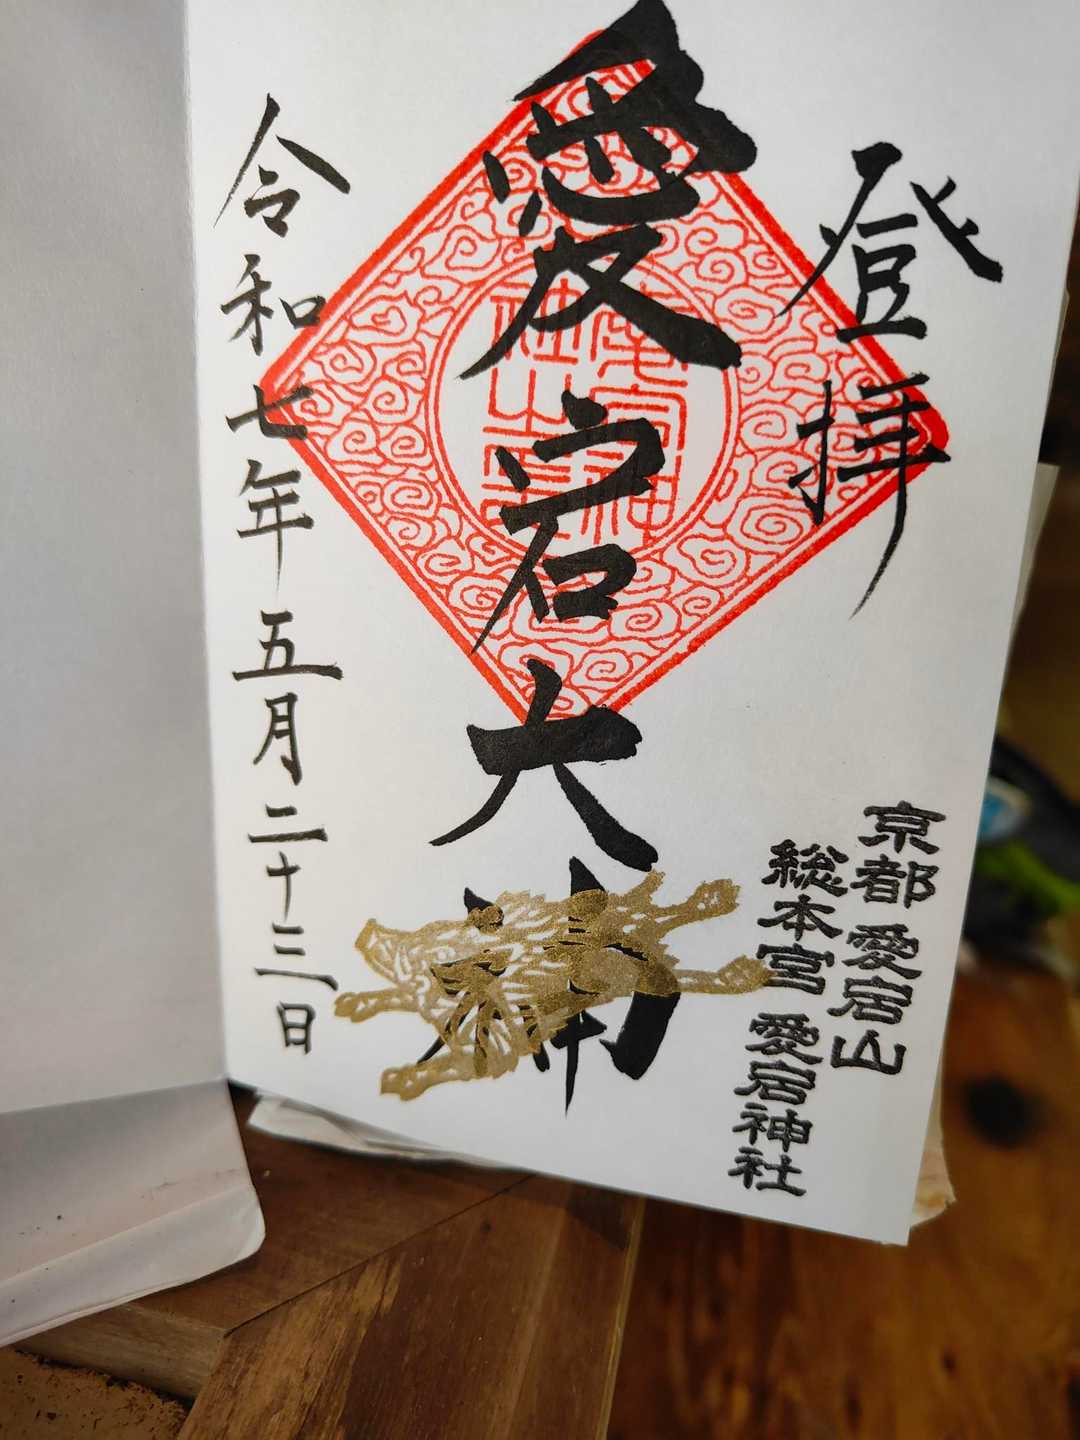 登拝
愛宕大神
令和七年五月二十三日
京都 愛宕山
総本宮 愛宕神社